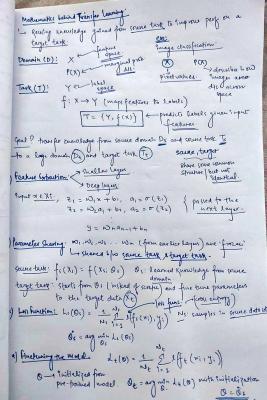 Mathematics behind Transfer Learning:-
Reusing knowledge gained from source task to improve perf on a
target task.
Domain (D): X → feature space
Image classification
P(X) → marginal prob dist
(X) P(X)
Pixel values
describes how
images are
dist across
space
Task (T): Y → label space
f: X → Y (map features to labels)
T = {Y, f(x)} → predicts labels given input
features.
Goal? transfer knowledge from source domain Ds and source task Ts
to a target domain Dt and target task Tt
source, target
share some common
structure but not
identical
1) Feature Extraction:
Shallow layers
Deep layers
Input x ∈ Xs.
z1 = w1x + b1, a1 = σ(z1)
z2 = w2a1 + b2, a2 = σ(z2)
passed to the
next layer.
y = wn an-1 + bn
Parameter Sharing: w1, w2 ... wn (from earlier layers) are
shared b/w source task & target task.
Source task: fs(xs) = f(xs; θs) θs learned knowledge from source
domain
target task: Starts from θs (instead of scratch) and fine tune parameters
to the target data
loss func.
Loss function: Ls(θs) = 1/Ns Σ i=1 Ns l(f(xi), yi)
Ns samples in source dataset
θs* = arg min θs Ls(θs)
Finetuning the model: Lt(θ) = 1/Nt Σ i=1 Nt l(f(xi, yi))
θ → initialized from
pre-trained model
θt = arg min θ Lt(θ) with initialization
θ = θs